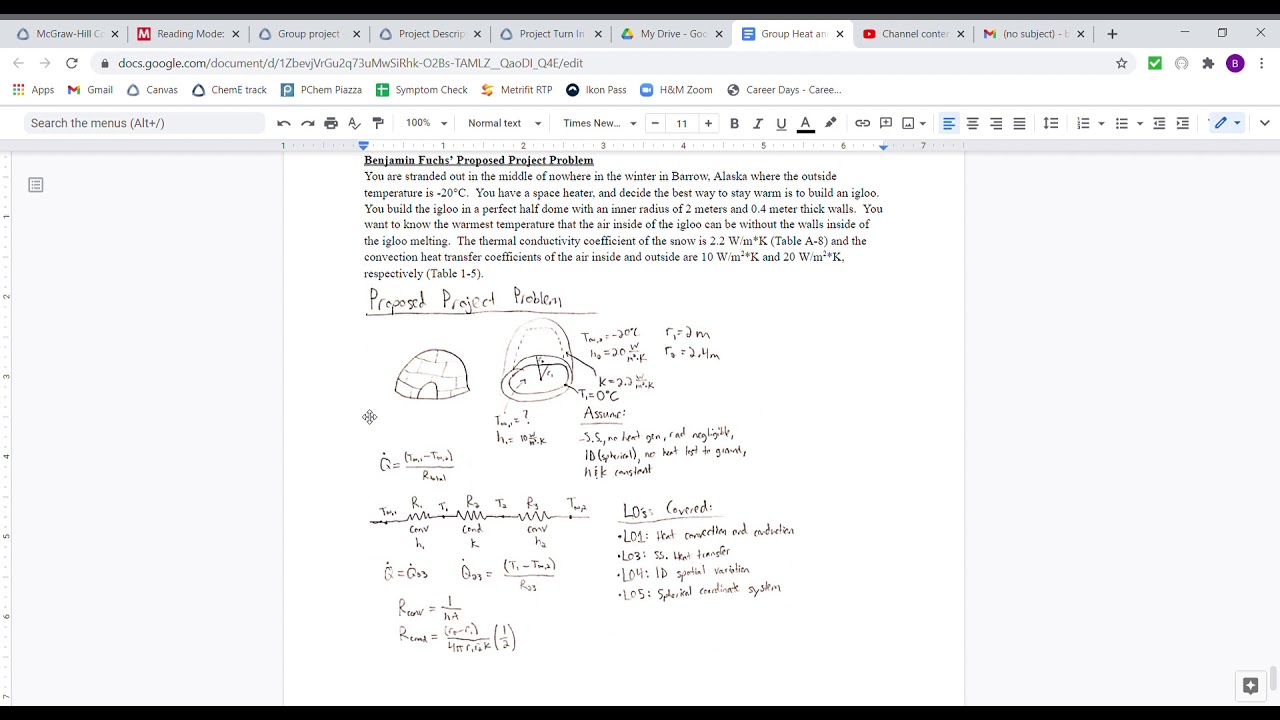 McGraw-Hill Co
Reading Mode:
Group project
Project Descrip
Project Turn In
My Drive - Goo
Group Heat an
Channel conten
(no subject) - b
docs.google.com/document/d/1ZbevjVrGu2q73uMwSiRhk-O2Bs-TAMLZ__QaoDI_Q4E/edit
B
Apps
Gmail
Canvas
ChemE track
PChem Piazza
Symptom Check
Metrifit RTP
Ikon Pass
H&M Zoom
Career Days - Caree...
Search the menus (Alt+/)
100%
Normal text
Times New...
11
B I U A
1 1 2 3 4 5 6 7
Benjamin Fuchs' Proposed Project Problem
You are stranded out in the middle of nowhere in the winter in Barrow, Alaska where the outside
temperature is -20°C. You have a space heater, and decide the best way to stay warm is to build an igloo.
You build the igloo in a perfect half dome with an inner radius of 2 meters and 0.4 meter thick walls. You
want to know the warmest temperature that the air inside of the igloo can be without the walls inside of
the igloo melting. The thermal conductivity coefficient of the snow is 2.2 W/m*K (Table A-8) and the
convection heat transfer coefficients of the air inside and outside are 10 W/m²*K and 20 W/m²*K,
respectively (Table 1-5).
Proposed Project Problem
T∞,2 = -20°C r₁ = 2m
h₂ = 20 W/m²·K r₂ = 2.4m
r₁
K = 2.2 W/m·K
T₁ = 0°C
T∞,1 = ?
h₁ = 10 W/m²·K
Assume:
-S.S, no heat gen, rad negligible,
1D (spherical), no heat lost to ground,
h & k constant
Q̇ = (T∞,1 - T∞,2) / Rtotal
T∞,1 R₁ T₁ R₂ T₂ R₃ T∞,2
conv cond conv
h₁ k h₂
LOs: Covered:
• LO1: Heat convection and conduction
• LO3: SS. Heat transfer
• LO4: 1D spatial variation
• LO5: Spherical coordinate system
Q̇ = Q̇23 Q̇23 = (T₁ - T∞,2) / R23
Rconv = 1 / hA
Rcond = (r₂ - r₁) / 4πr₁r₂k (1/2)
1
2
3
4
5
6
7